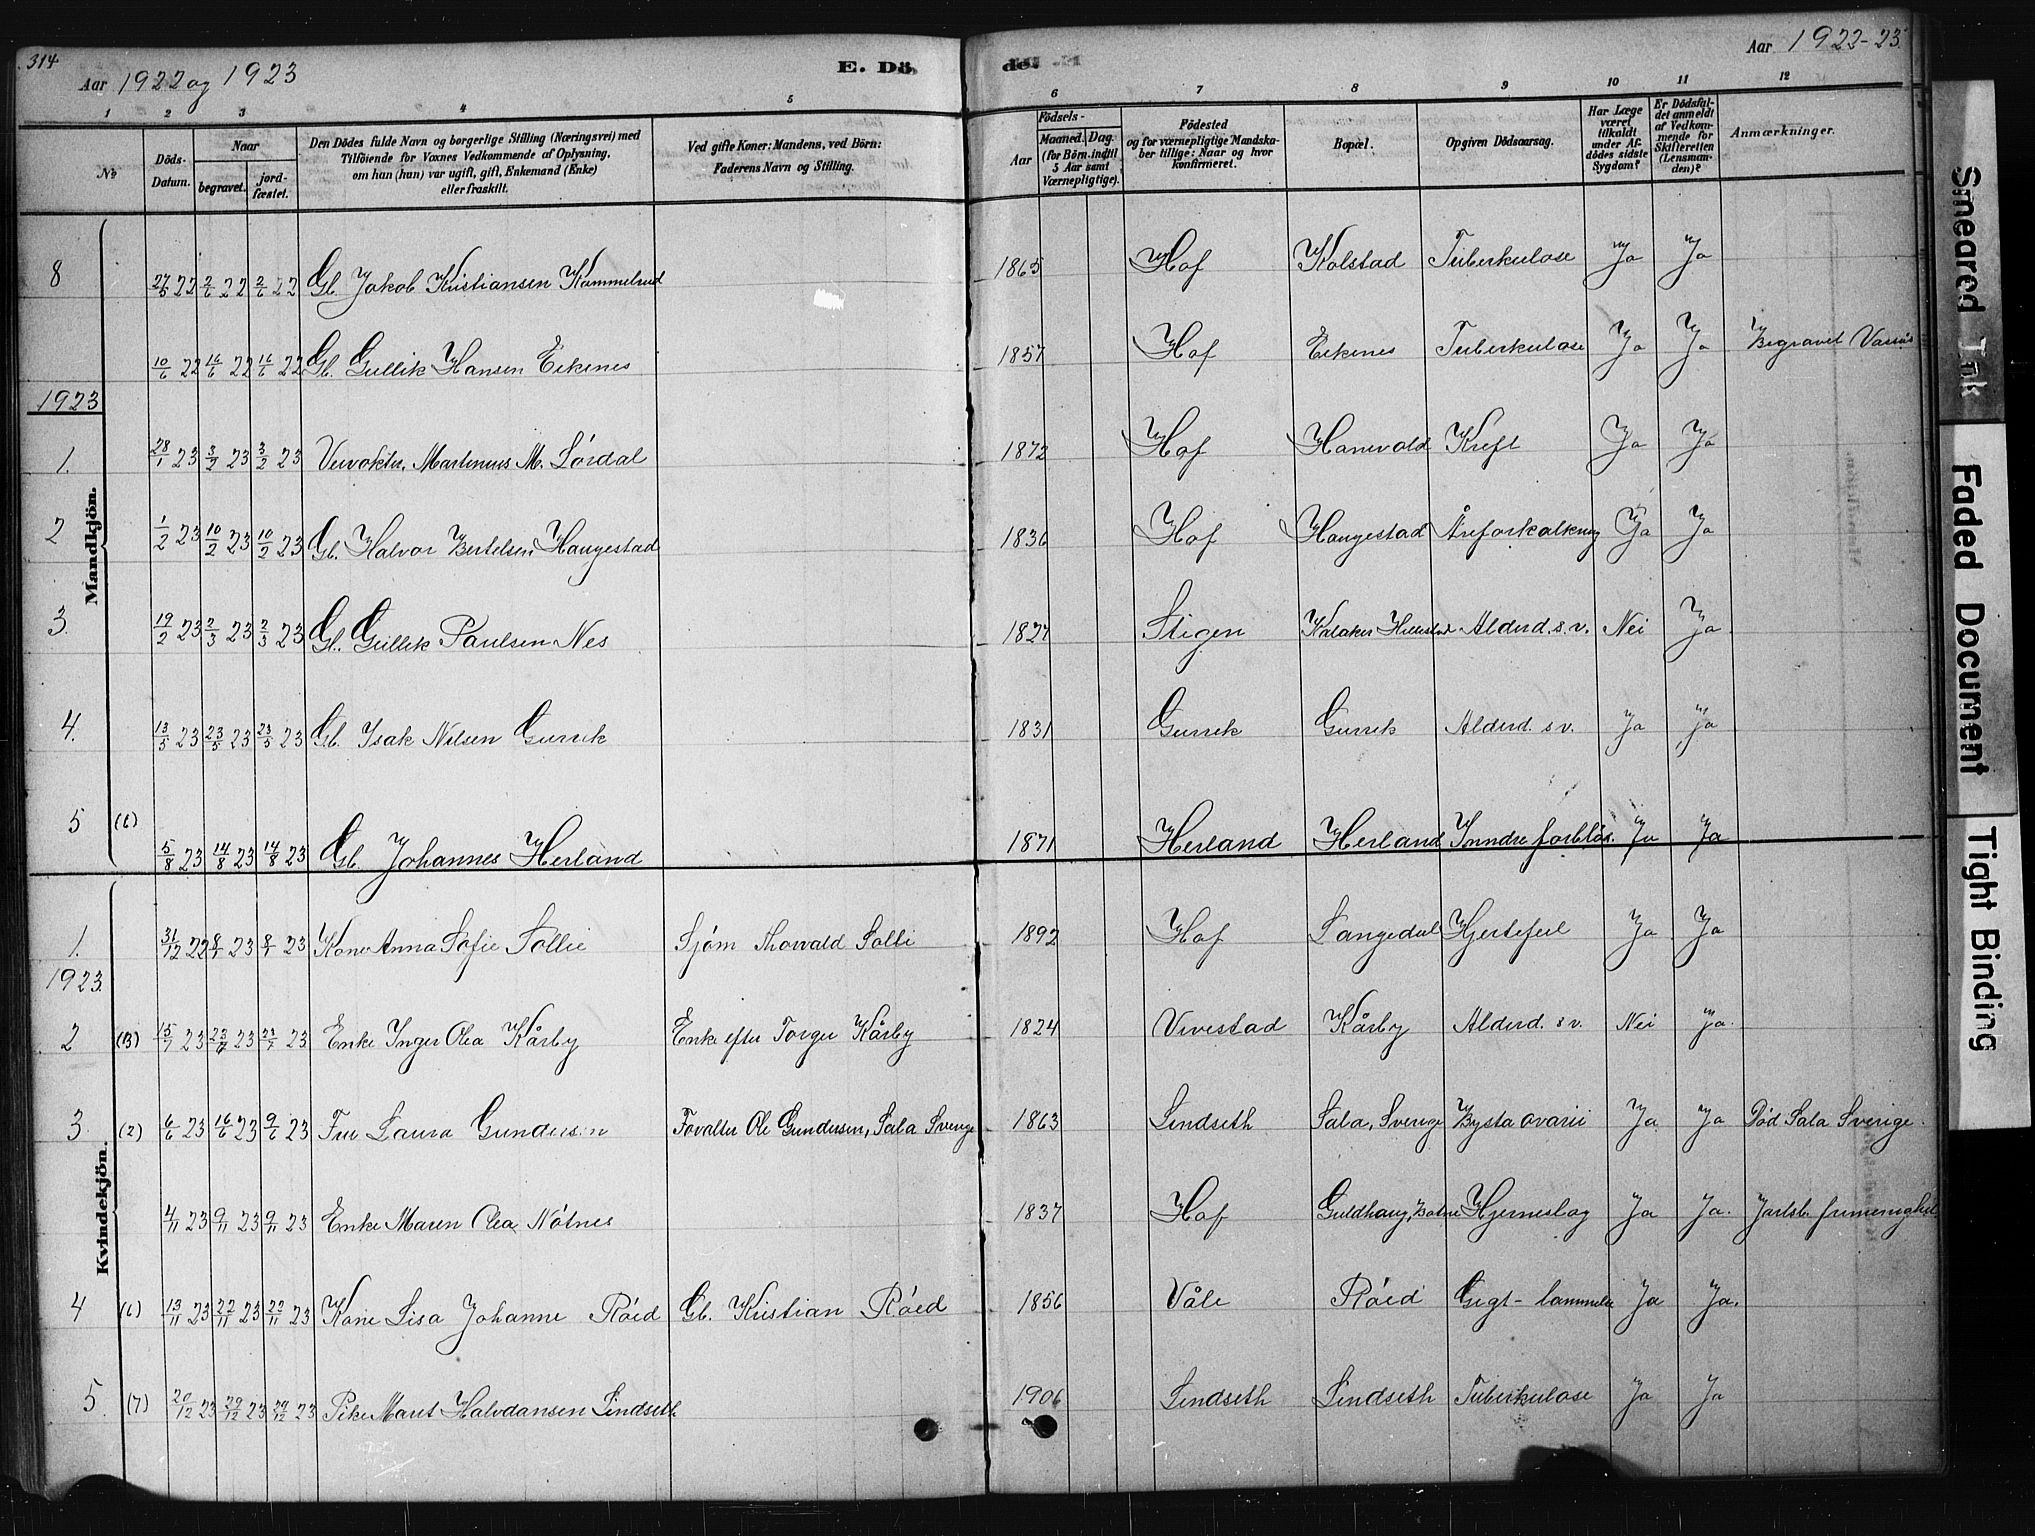 314
Aar 1922 og 1923
E. Dö
de.
Aar 1922-23
1 2 3 4 5 6 7 8 9 10 11 12
№
Döds-Datum.
Naar
begravet.
jord-fæstet.
Den Dödes fulde Navn og borgerlige Stilling (Næringsvei) med
Tilföiende for Voxnes Vedkommende af Oplysning,
om han (hun) var ugift, gift, Enkemand (Enke)
eller fraskilt.
Ved gifte Koner: Mandens, ved Börn:
Faderens Navn og Stilling.
Födsels-
Aar
Maaned. Dag.
(for Börn indtil
5 Aar samt
Værnepligtige).
Födested
og for værnepligtige Mandska-
ber tillige: Naar og hvor
konfirmeret.
Bopæl.
Opgiven Dödsaarsag.
Har Læge
været
tilkaldt
under Af-
dödes sidste
Sygdom?
Er Dödsfal-
det anmeldt
af Vedkom-
mende for
Skifteretten
(Lensman-
den)?
Anmærkninger.
Mandkjön.
8 27/5 22 2/6 22 2/6 22 Gb. Jakob Kristiansen Kammelrud 1865 Hof Kolstad Tuberkulose Ja Ja
10/6 22 16/6 22 16/6 22 Gb. Gullik Hansen Eikenes 1857 Hof Eikenes Tuberkulose Ja Ja Begravet Vassås
1923
1. 28/1 23 3/2 23 3/2 23 Martinus M. Sørdal 1872 Hof Hanevold Kreft Ja Ja
2 1/2 23 10/2 23 10/2 23 Gb. Halvor Bertelsen Haugestad 1836 Hof Haugestad Åreforkalkning Ja Ja
3. 19/2 23 2/3 23 2/3 23 Gb. Gullik Paulsen Nes 1827 Stigen Hillestad Alderd. s.v. Nei Ja
4. 13/5 23 23/5 23 23/5 23 Gb. Isak Nilsen Gurrik 1831 Gurrik Gurrik Alderd. s v. Ja Ja
5 (6) 5/8 23 14/8 23 14/8 23 Gb. Johannes Herland 1871 Herland Herland Inndre forblød. Ja Ja
Kvindekjön.
1. 31/12 22 8/1 23 8/1 23 Kone Anna Sofie Sollie Sjøm Thorvald Solli 1892 Hof Langedal Hjertefeil Ja Ja
1923
2 (3) 15/7 23 23/7 23 23/7 23 Enke Inger Olea Kårby Enke efter Torger Kårby 1824 Vivestad Kårby Alderd. s v. Nei Ja.
3. (2) 6/6 23 16/6 23 9/6 23 Fru Laura Gundersen Forvalter Ole Gundersen, Sala Sverige 1863 Lindseth Sala, Sverige Kysta ovarii Ja Ja Død Sala Sverige.
4/11 23 9/11 23 9/11 23 Enke Maren Olea Nøtnes 1837 Hof Guldhaug, Botne Hjerneslag Ja Ja. Jarlsb. frimenighet
4 (6) 13/11 23 22/11 23 22/11 23 Kone Lisa Johanne Røed Gb. Kristian Røed 1856 Våle Røed Gigt-lammelse Ja Ja.
5. (7) 20/12 23 29/12 23 29/12 23 Pike Marit Halvdansen Lindseth 1906 Lindseth Lindseth Tuberkulose Ja Ja
Smeared Ink
Faded Document
Tight Binding